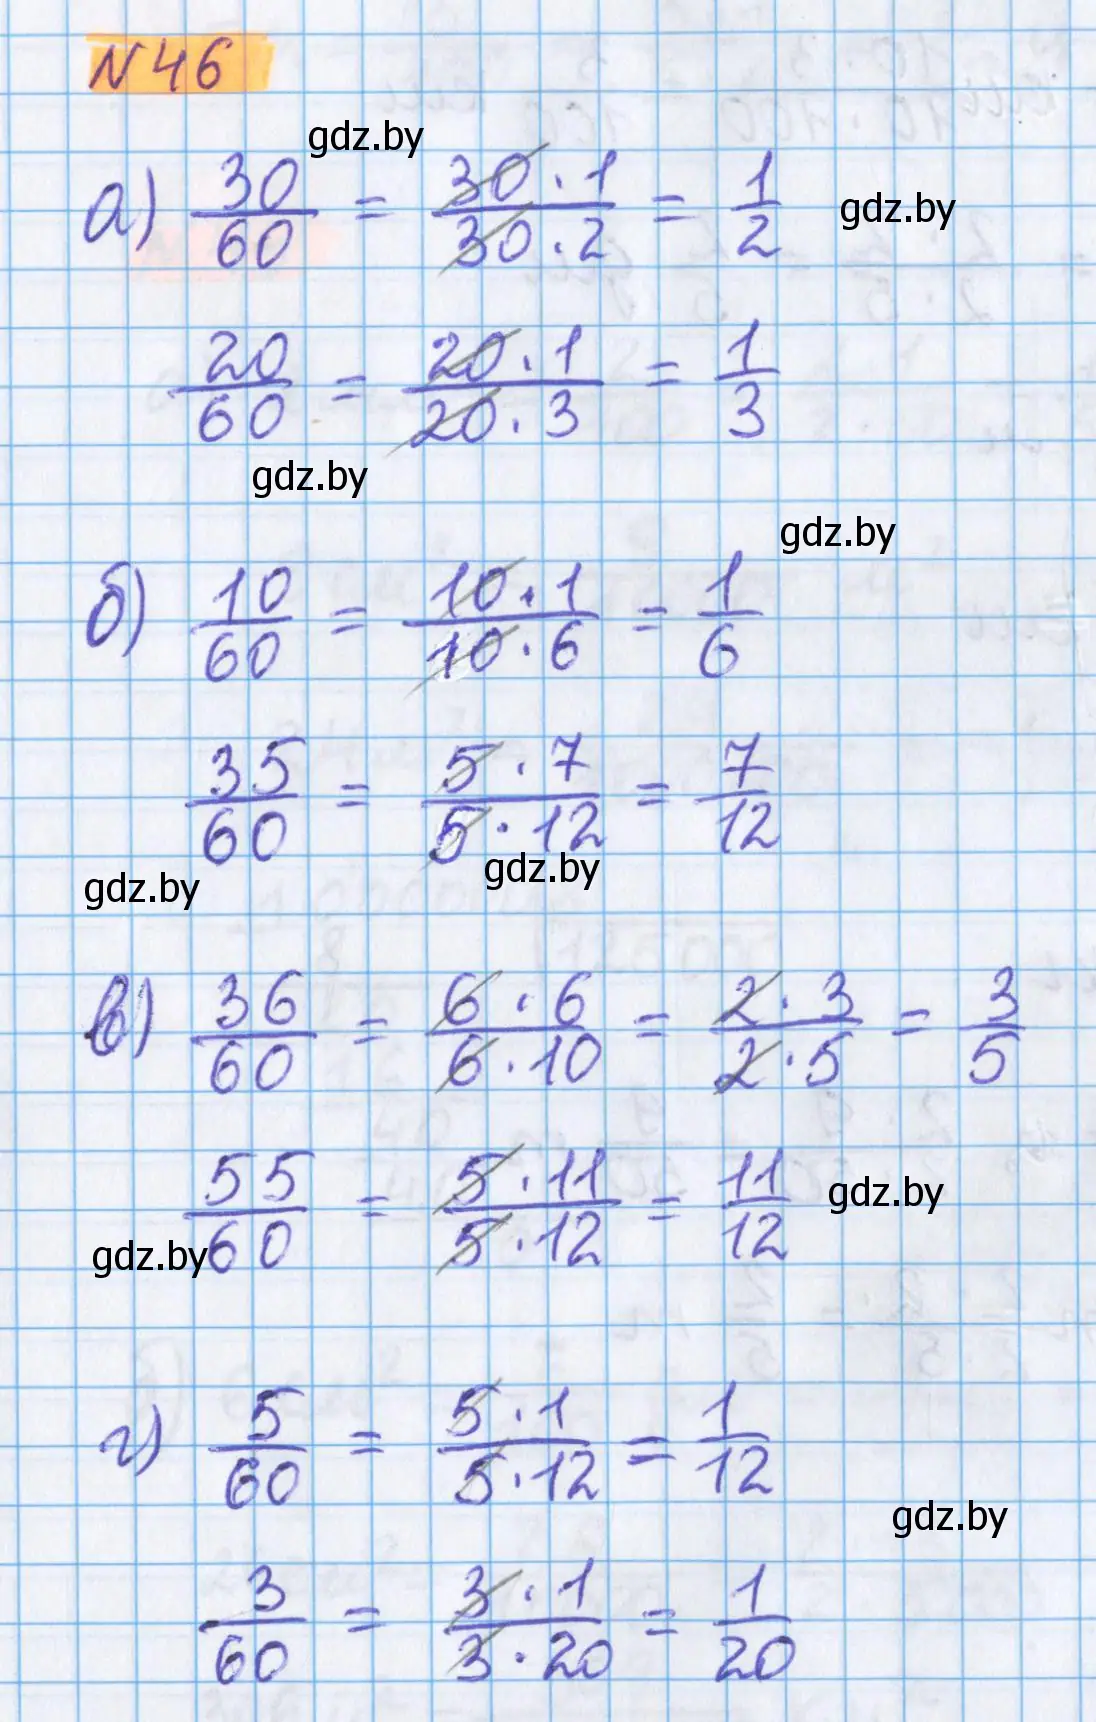 №46
gdz.by
а) 30/60 = 30·1/30·2 = 1/2
gdz.by
20/60 = 20·1/20·3 = 1/3
gdz.by
gdz.by
б) 10/60 = 10·1/10·6 = 1/6
35/60 = 5·7/5·12 = 7/12
gdz.by
gdz.by
в) 36/60 = 6·6/6·10 = 2·3/2·5 = 3/5
55/60 = 5·11/5·12 = 11/12
gdz.by
gdz.by
г) 5/60 = 5·1/5·12 = 1/12
gdz.by
3/60 = 3·1/3·20 = 1/20